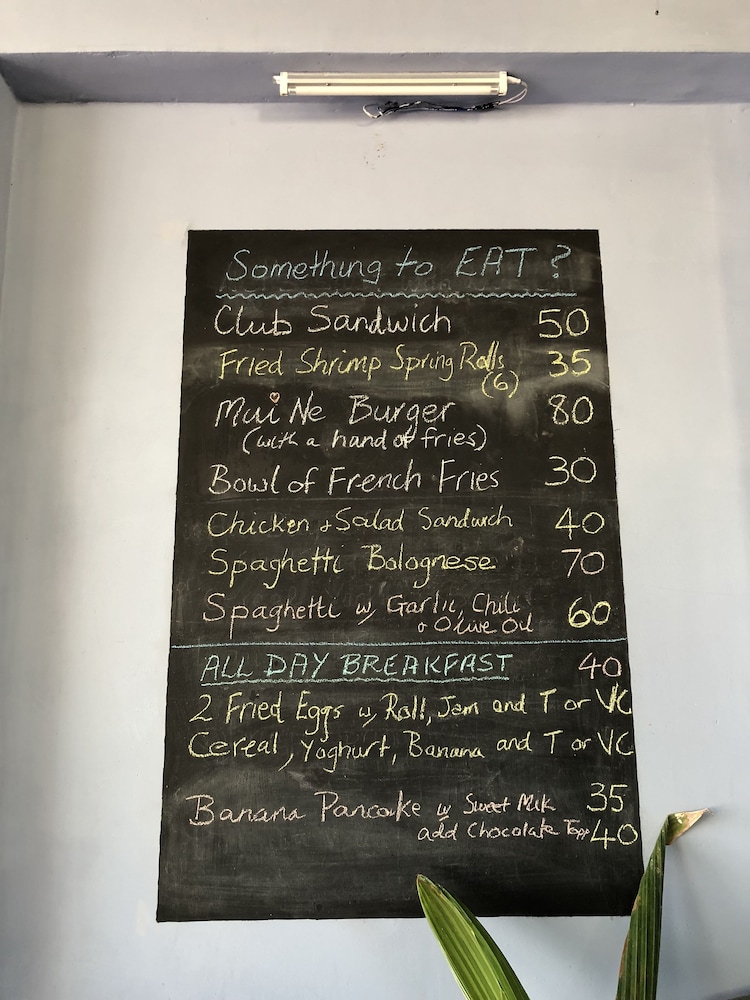 Something to EAT ?
Club Sandwich 50
Fried Shrimp Spring Rolls 35
(6)
Mui Ne Burger 80
(with a hand of fries)
Bowl of French Fries 30
Chicken + Salad Sandwich 40
Spaghetti Bolognese 70
Spaghetti w/ Garlic, Chili 60
+ Olive Oil
ALL DAY BREAKFAST 40
2 Fried Eggs w/ Roll, Jam and T or VC
Cereal, Yoghurt, Banana and T or VC
Banana Pancake w Sweet Milk 35
add Chocolate 40